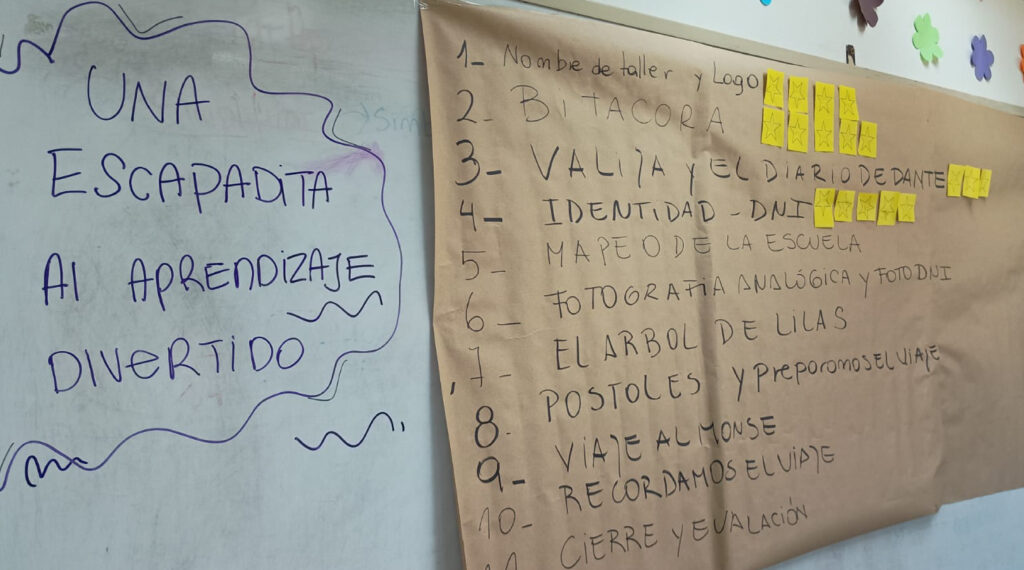 UNA
ESCAPADITA
Al APRENDIZAJE
DIVERTIDO
1- Nombre de taller y Logo
2- BITACORA
3- VALIJA y EL DIARIO DE DANTE
4- IDENTIDAD - DNI
5- MAPEO DE LA ESCUELA
6- FOTOGRAFIA ANALÓGICA y FOTO DNI
7- EL ARBOL DE LILAS
8- POSTaLES y preparamos EL VIAJE
9- VIAJE AL MONSE
10- RECORDAMOS EL VIAJE
11 CIERRE Y EVALACIÓN